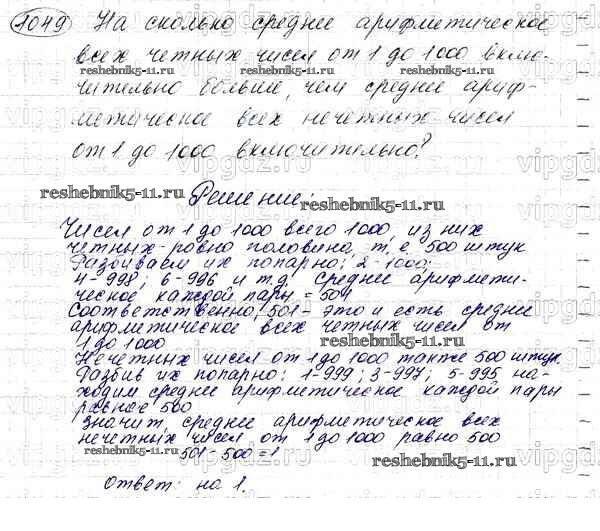 1049 На сколько среднее арифметическое
всех четных чисел от 1 до 1000 вклю-
reshebnik5-11.ru reshebnik5-11.ru
чительно больше, чем среднее ариф-
метическое всех нечетных чисел
от 1 до 1000 включительно?
reshebnik5-11.ru Решение: reshebnik5-11.ru
Чисел от 1 до 1000 всего 1000, из них
четных - ровно половина, т. е 500 штук
Разбиваем их попарно: 2-1000;
4-998; 6-996 и т.д. Среднее арифмети-
ческое каждой пары = 501
Соответственно, 501 - это и есть среднее
арифметическое всех четных чисел от
1 до 1000
Нечетных чисел от 1 до 1000 также 500 штук
Разбив их попарно: 1-999; 3-997; 5-995 на-
ходим среднее арифметическое каждой пары
равное 500
Значит, среднее арифметическое всех
нечетных чисел от 1 до 1000 равно 500
501-500=1
reshebnik5-11.ru reshebnik5-11.ru
Ответ: на 1.